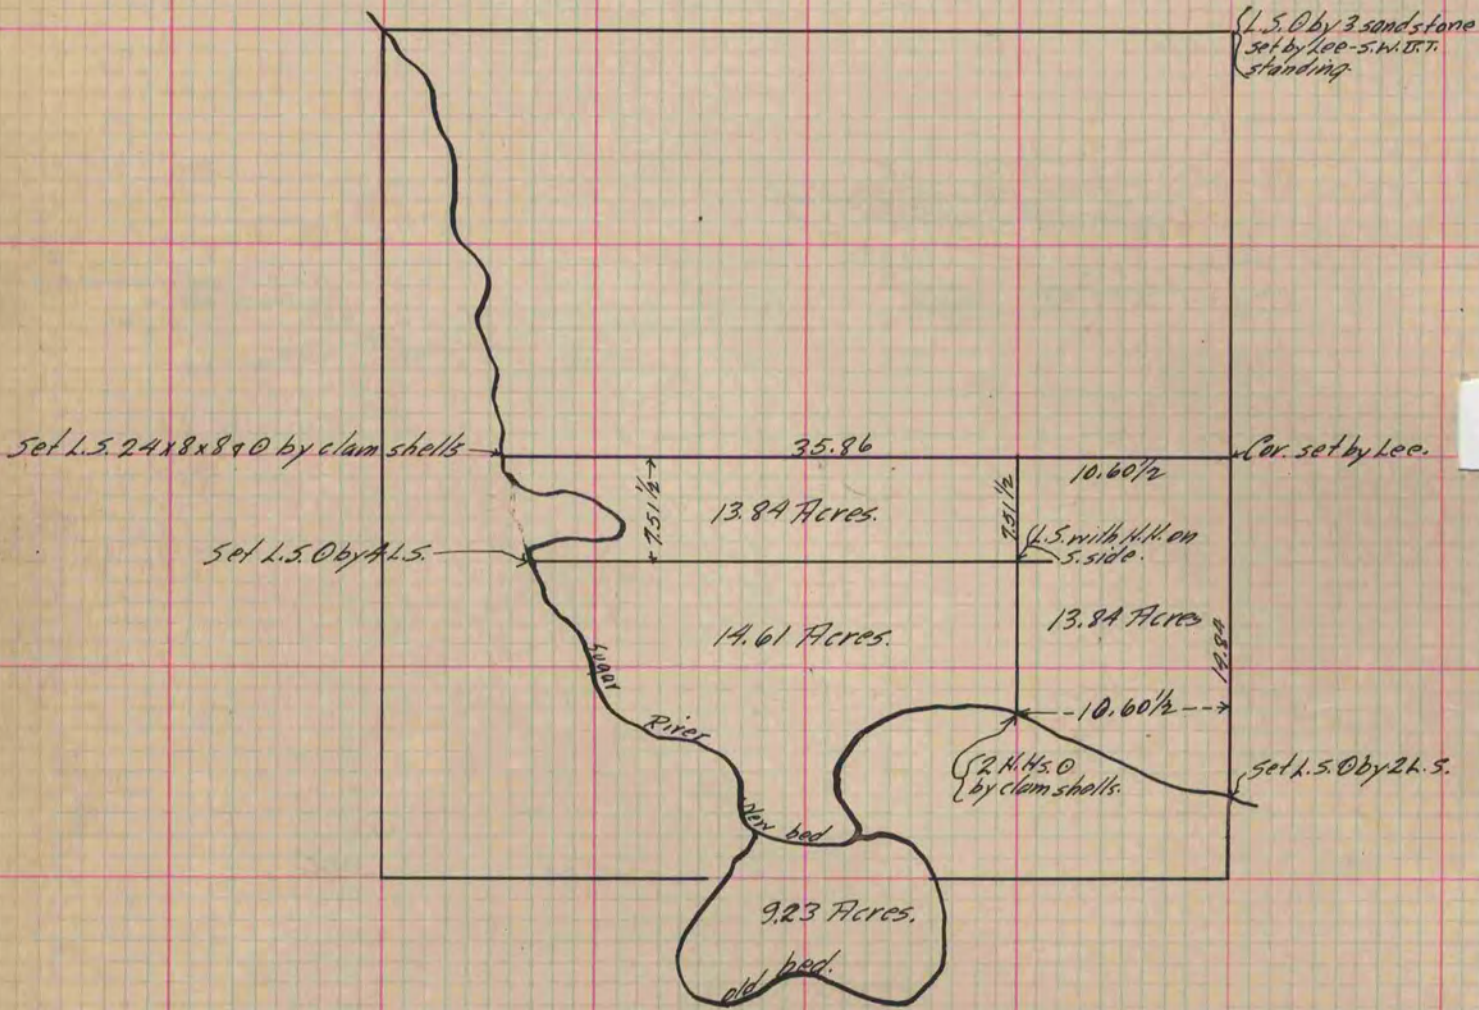 L.S. ⊙ by 3 sandstone
set by Lee - S.W. B.T.
standing.
Set L.S. 24x8x8 & ⊙ by clam shells
35.86
Cor. set by Lee.
10.60½
7.51½
13.84 Acres.
7.51½
L.S. with H.H. on
S. side.
Set L.S. ⊙ by 4 L.S.
14.61 Acres.
13.84 Acres
14.84
Sugar
River
10.60½
2 H.Hs. ⊙
by clam shells.
Set L.S. ⊙ by 2 L.S.
New bed
9.23 Acres.
old bed.